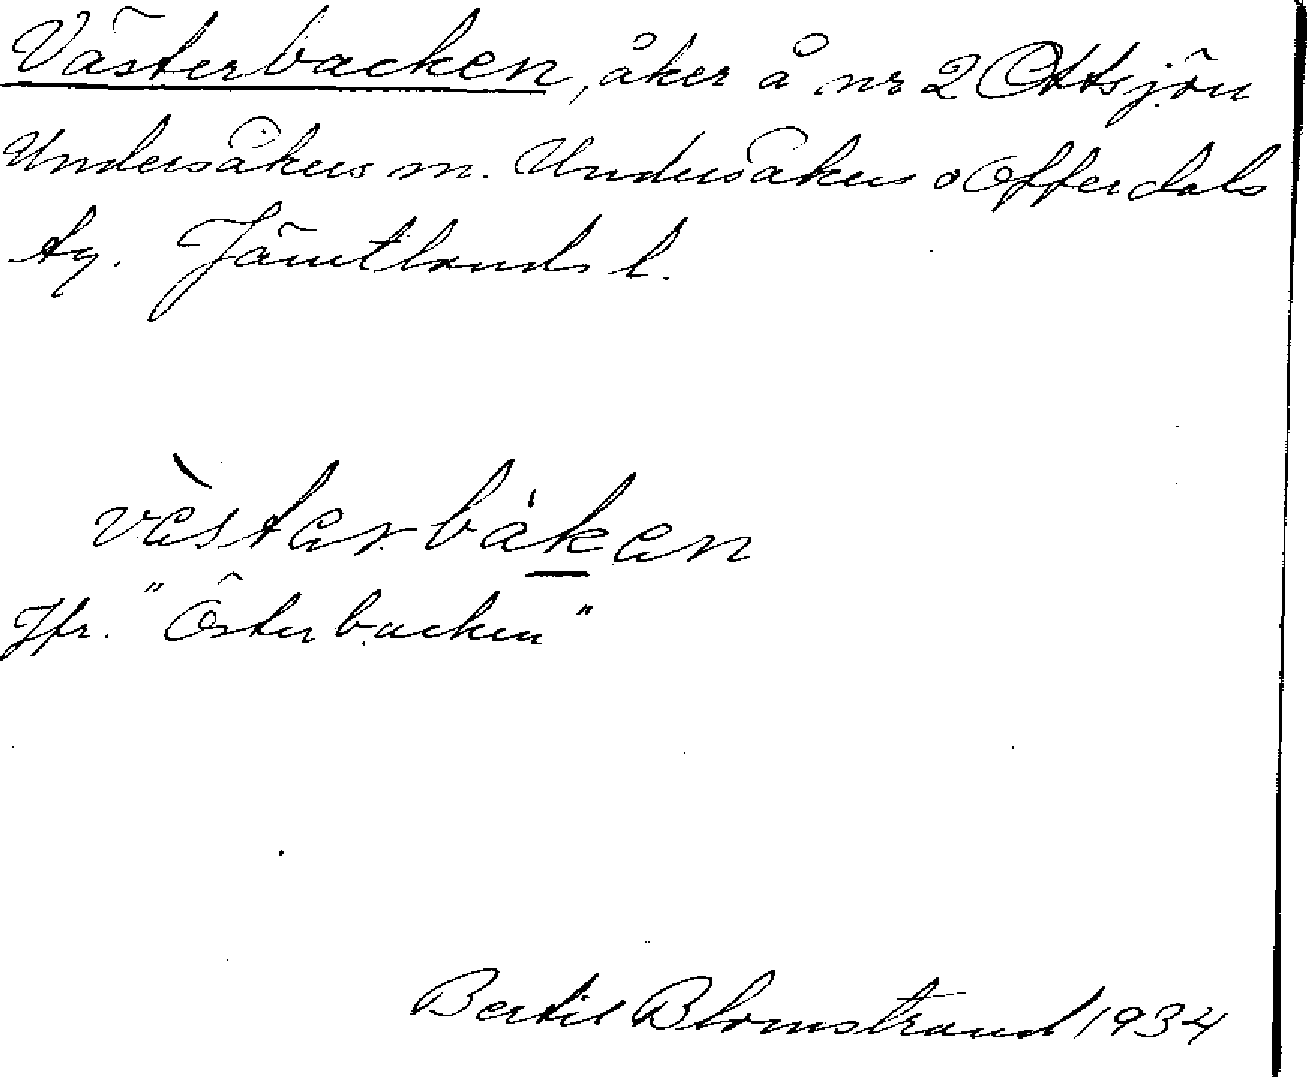 Västerbacken, åker å nr 2 Ottsjön
Undersåkers sn. Undersåkers o Offerdals
tg. Jämtlands l.
vèstarbákan
Jfr. "Österbacken"
Bertil Blomstrand 1934